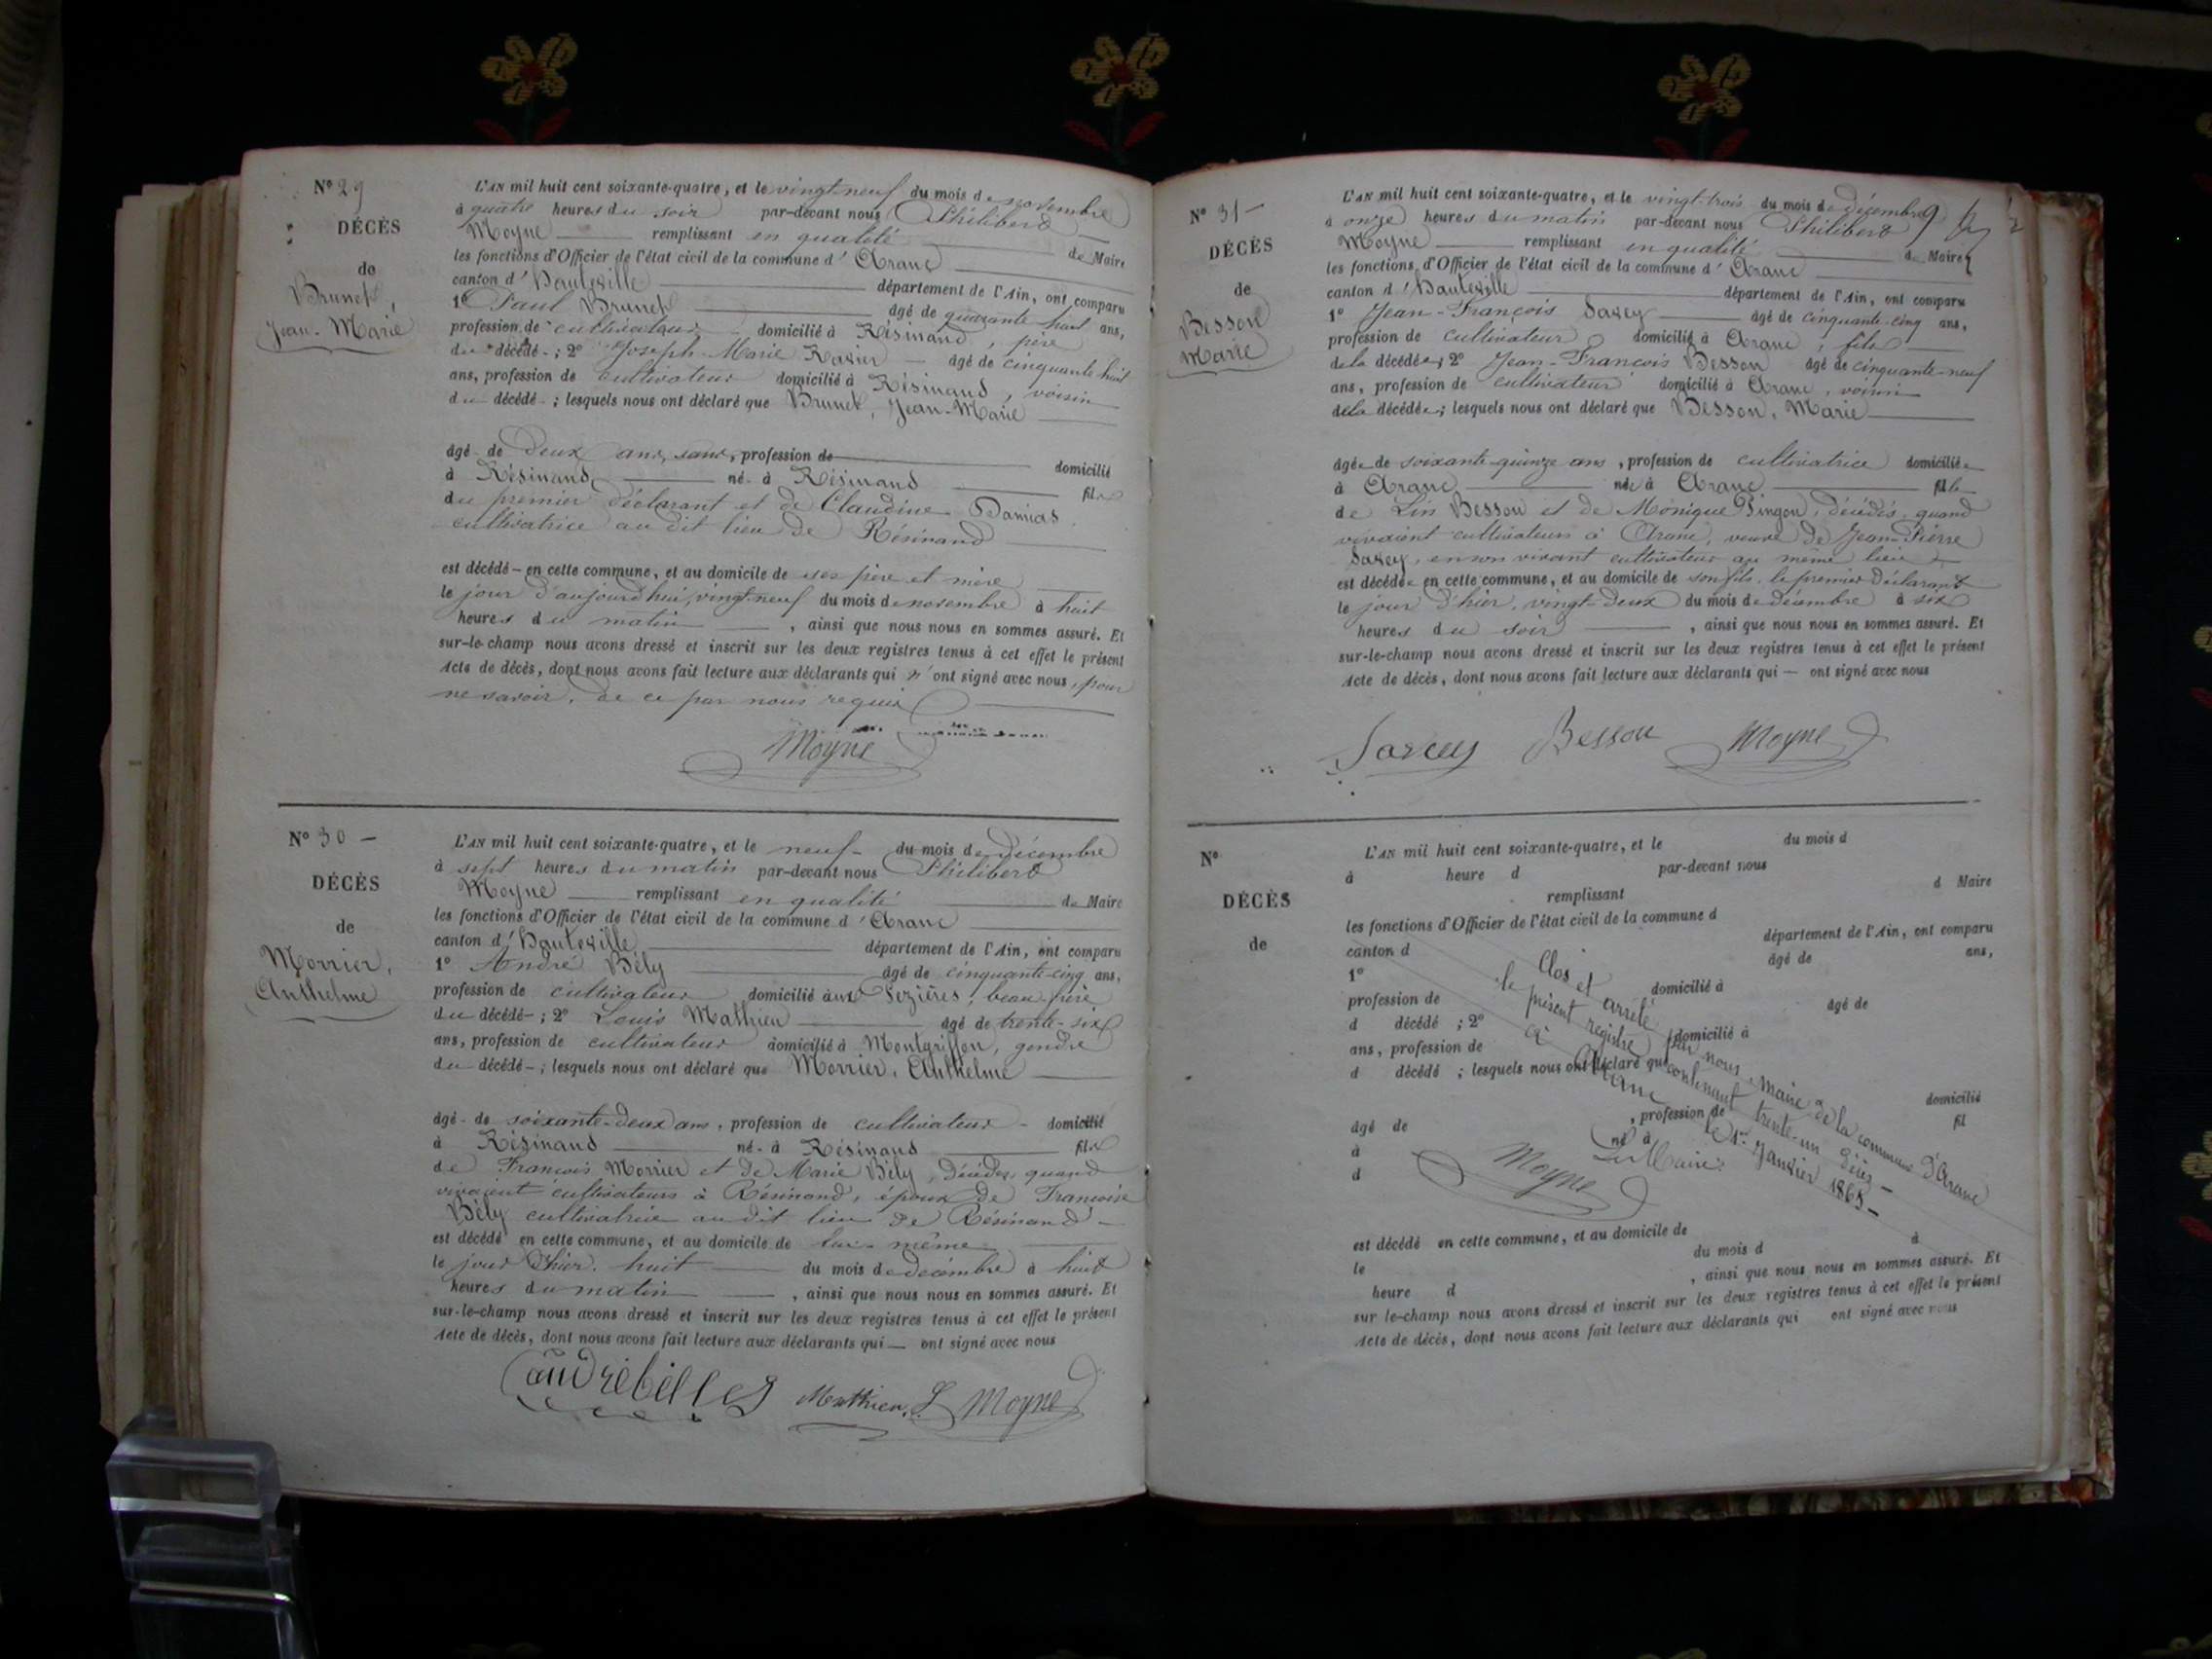 N° 29
DÉCÈS
de
Brunet,
Jean-Marie
L'AN mil huit cent soixante-quatre, et le vingt-neuf du mois de novembre
à quatre heures du soir par-devant nous Philibert
Moyne remplissant en qualité de Maire
les fonctions d'Officier de l'état civil de la commune d'Aranc
canton d'Hauteville département de l'Ain, ont comparu
1° Paul Brunet âgé de quarante huit ans,
profession de cultivateur domicilié à Résinand, père
du décédé ; 2° Joseph-Marie Ravier âgé de cinquante-huit
ans, profession de cultivateur domicilié à Résinand, voisin
du décédé ; lesquels nous ont déclaré que Brunet, Jean-Marie
âgé de Deux ans, sans, profession de domicilié
à Résinand né à Résinand fils
du premier déclarant et de Claudine Damias
cultivatrice au dit lieu de Résinand
est décédé en cette commune, et au domicile de ses père et mère
le jour d'aujourd'hui, vingt-neuf du mois de novembre à huit
heures du matin , ainsi que nous nous en sommes assuré. Et
sur-le-champ nous avons dressé et inscrit sur les deux registres tenus à cet effet le présent
Acte de décès, dont nous avons fait lecture aux déclarants qui n'ont signé avec nous, pour
ne savoir, de ce par nous requis
Moyne
N° 30 -
DÉCÈS
de
Morrier,
Anthelme
L'AN mil huit cent soixante-quatre, et le neuf du mois de décembre
à sept heures du matin par-devant nous Philibert
Moyne remplissant en qualité de Maire
les fonctions d'Officier de l'état civil de la commune d'Aranc
canton d'Hauteville département de l'Ain, ont comparu
1° André Bély âgé de cinquante-cinq ans,
profession de cultivateur domicilié aux Pezières, beau-frère
du décédé ; 2° Louis Mathieu âgé de trente-six
ans, profession de cultivateur domicilié à Montgriffon, gendre
du décédé ; lesquels nous ont déclaré que Morrier, Anthelme
âgé de soixante-deux ans, profession de cultivateur domicilié
à Résinand né à Résinand fils
de François Morrier et de Marie Bély, décédés, quand
vivaient cultivateurs à Résinand, époux de Françoise
Bély cultivatrice au dit lieu de Résinand
est décédé en cette commune, et au domicile de lui-même
le jour d'hier, huit du mois de décembre à huit
heures du matin , ainsi que nous nous en sommes assuré. Et
sur-le-champ nous avons dressé et inscrit sur les deux registres tenus à cet effet le présent
Acte de décès, dont nous avons fait lecture aux déclarants qui — ont signé avec nous
Mathieu L Moyne
N° 31 -
DÉCÈS
de
Besson
Marie
L'AN mil huit cent soixante-quatre, et le vingt-trois du mois de décembre
à onze heures du matin par-devant nous Philibert
Moyne remplissant en qualité de Maire
les fonctions d'Officier de l'état civil de la commune d'Aranc
canton d'Hauteville département de l'Ain, ont comparu
1° Jean-François Savey âgé de cinquante-cinq ans,
profession de cultivateur domicilié à Aranc, fils
de la décédée ; 2° Jean-François Besson âgé de cinquante-neuf
ans, profession de cultivateur domicilié à Aranc, voisin
de la décédée ; lesquels nous ont déclaré que Besson, Marie
âgée de soixante-quinze ans, profession de cultivatrice domiciliée
à Aranc née à Aranc fille
de Lin Besson et de Monique Pingon, décédés, quand
vivaient cultivateurs à Aranc, veuve de Jean-Pierre
Savey, en son vivant cultivateur au même lieu
est décédée en cette commune, et au domicile de son fils, le premier déclarant
le jour d'hier, vingt-deux du mois de décembre à six
heures du soir , ainsi que nous nous en sommes assuré. Et
sur-le-champ nous avons dressé et inscrit sur les deux registres tenus à cet effet le présent
Acte de décès, dont nous avons fait lecture aux déclarants qui — ont signé avec nous
Besson Moyne
N°
DÉCÈS
de
L'AN mil huit cent soixante-quatre, et le du mois d
à heure d par-devant nous
remplissant d Maire
les fonctions d'Officier de l'état civil de la commune d
canton d département de l'Ain, ont comparu
1° âgé de ans,
profession de domicilié à
d décédé ; 2° âgé de
ans, profession de domicilié à
d décédé ; lesquels nous ont déclaré que
âgé de , profession de domicilié
à né à fil
d
est décédé en cette commune, et au domicile de
le du mois d à
heure d , ainsi que nous nous en sommes assuré. Et
sur le-champ nous avons dressé et inscrit sur les deux registres tenus à cet effet le présent
Acte de décès, dont nous avons fait lecture aux déclarants qui ont signé avec nous
Clos et arrêté par nous, Maire de la commune d'Aranc
le présent registre contenant trente-un décès -
à Aranc le 1er Janvier 1865 -
Le Maire
Moyne